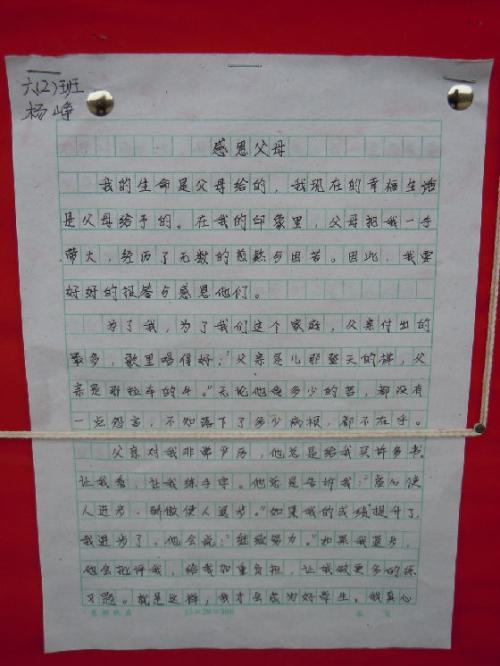 六(2)班
杨峥
感恩父母
我的生命是父母给的，我现在的幸福生活
是父母给予的。在我的印象里，父母把我一手
带大，经历了无数的煎熬与困苦。因此，我要
好好的报答与感恩他们。
为了我，为了我们这个家庭，父亲付出的
最多，歌里唱得好："父亲是儿那登天的梯，父
亲是那拉车的牛。"无论他受多少的苦，都没有
一点怨言，不知落下了多少病根，都不在乎。
父亲对我非常严厉，他总是给我买许多书
让我看，让我练字。他总是告诉我："虚心使
人进步，骄傲使人退步。"如果我的成绩提升了，
我进步了，他会说："继续努力。"如果我退步，
他会批评我，给我加重负担，让我做更多的练
习题。就是这样，我才会成为好学生。我真心
15×20=300